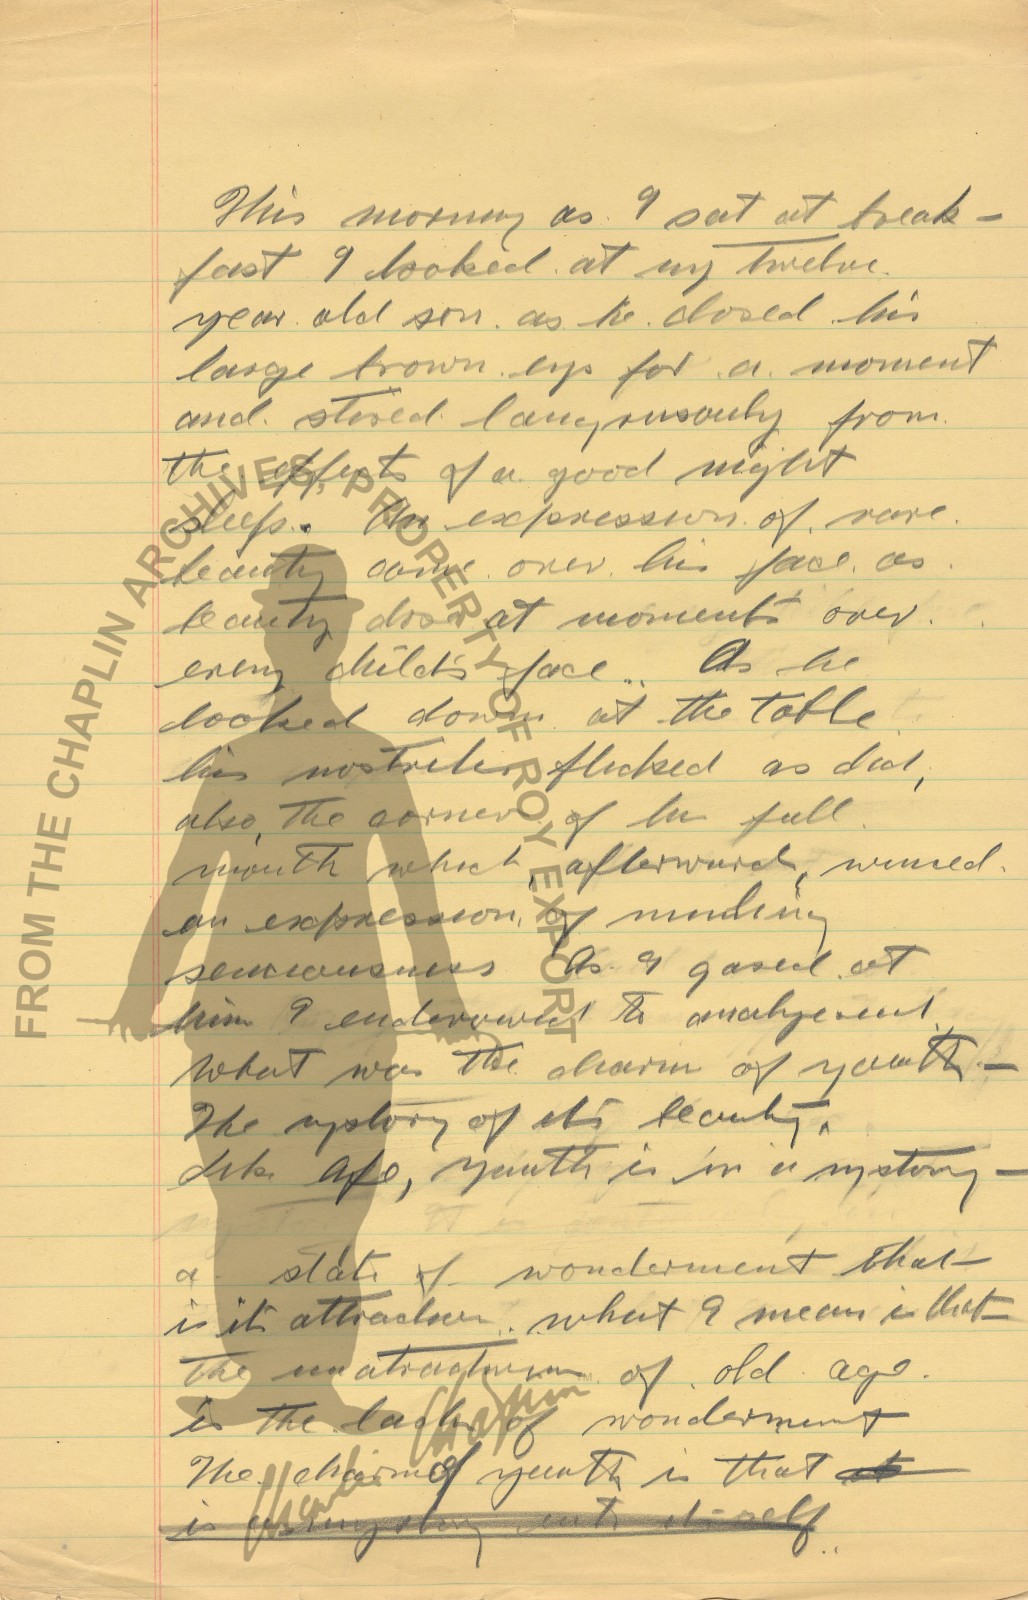 This morning as I sat at break-
fast I looked at my twelve
year old son as he closed his
large brown eys for a moment
and stired from
the effects of a good night
sleep. An expression of rare
beauty came over his face as
beauty does at moments over
every child's face.. As he
looked down at the table
his nostriles flicked as did,
also, the corner of his full
mouth which, afterward,
an expression of
As I gased at
him I to
what was the charm of youth -
The mystory of its beauty.
Like Age, youth is in a mystory -
a state of wonderment that
is its attraction.. what I mean is that
the unatraction of old age
is the lack of wonderment
The charm of youth is that it
is a mystory unto its self..
FROM THE CHAPLIN ARCHIVES, PROPERTY OF ROY EXPORT
Charlie Chaplin
TM